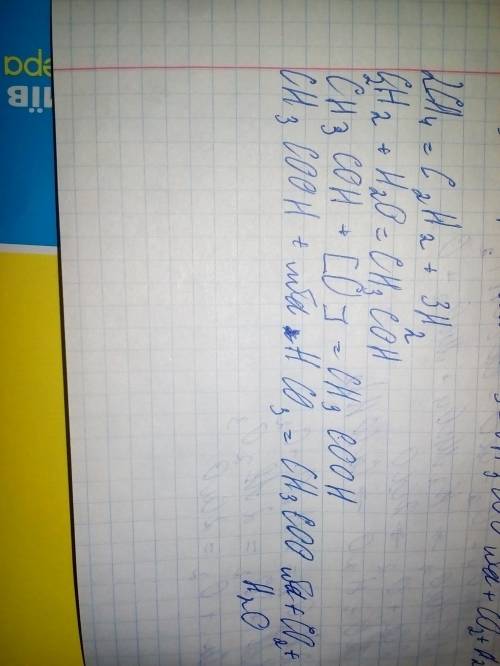 2CH₄ = C₂H₂ + 3H₂
C₂H₂ + H₂O = CH₃COH
CH₃COH + [O] = CH₃COOH
CH₃COOH + NaHCO₃ = CH₃COONa + CO₂ +
H₂O